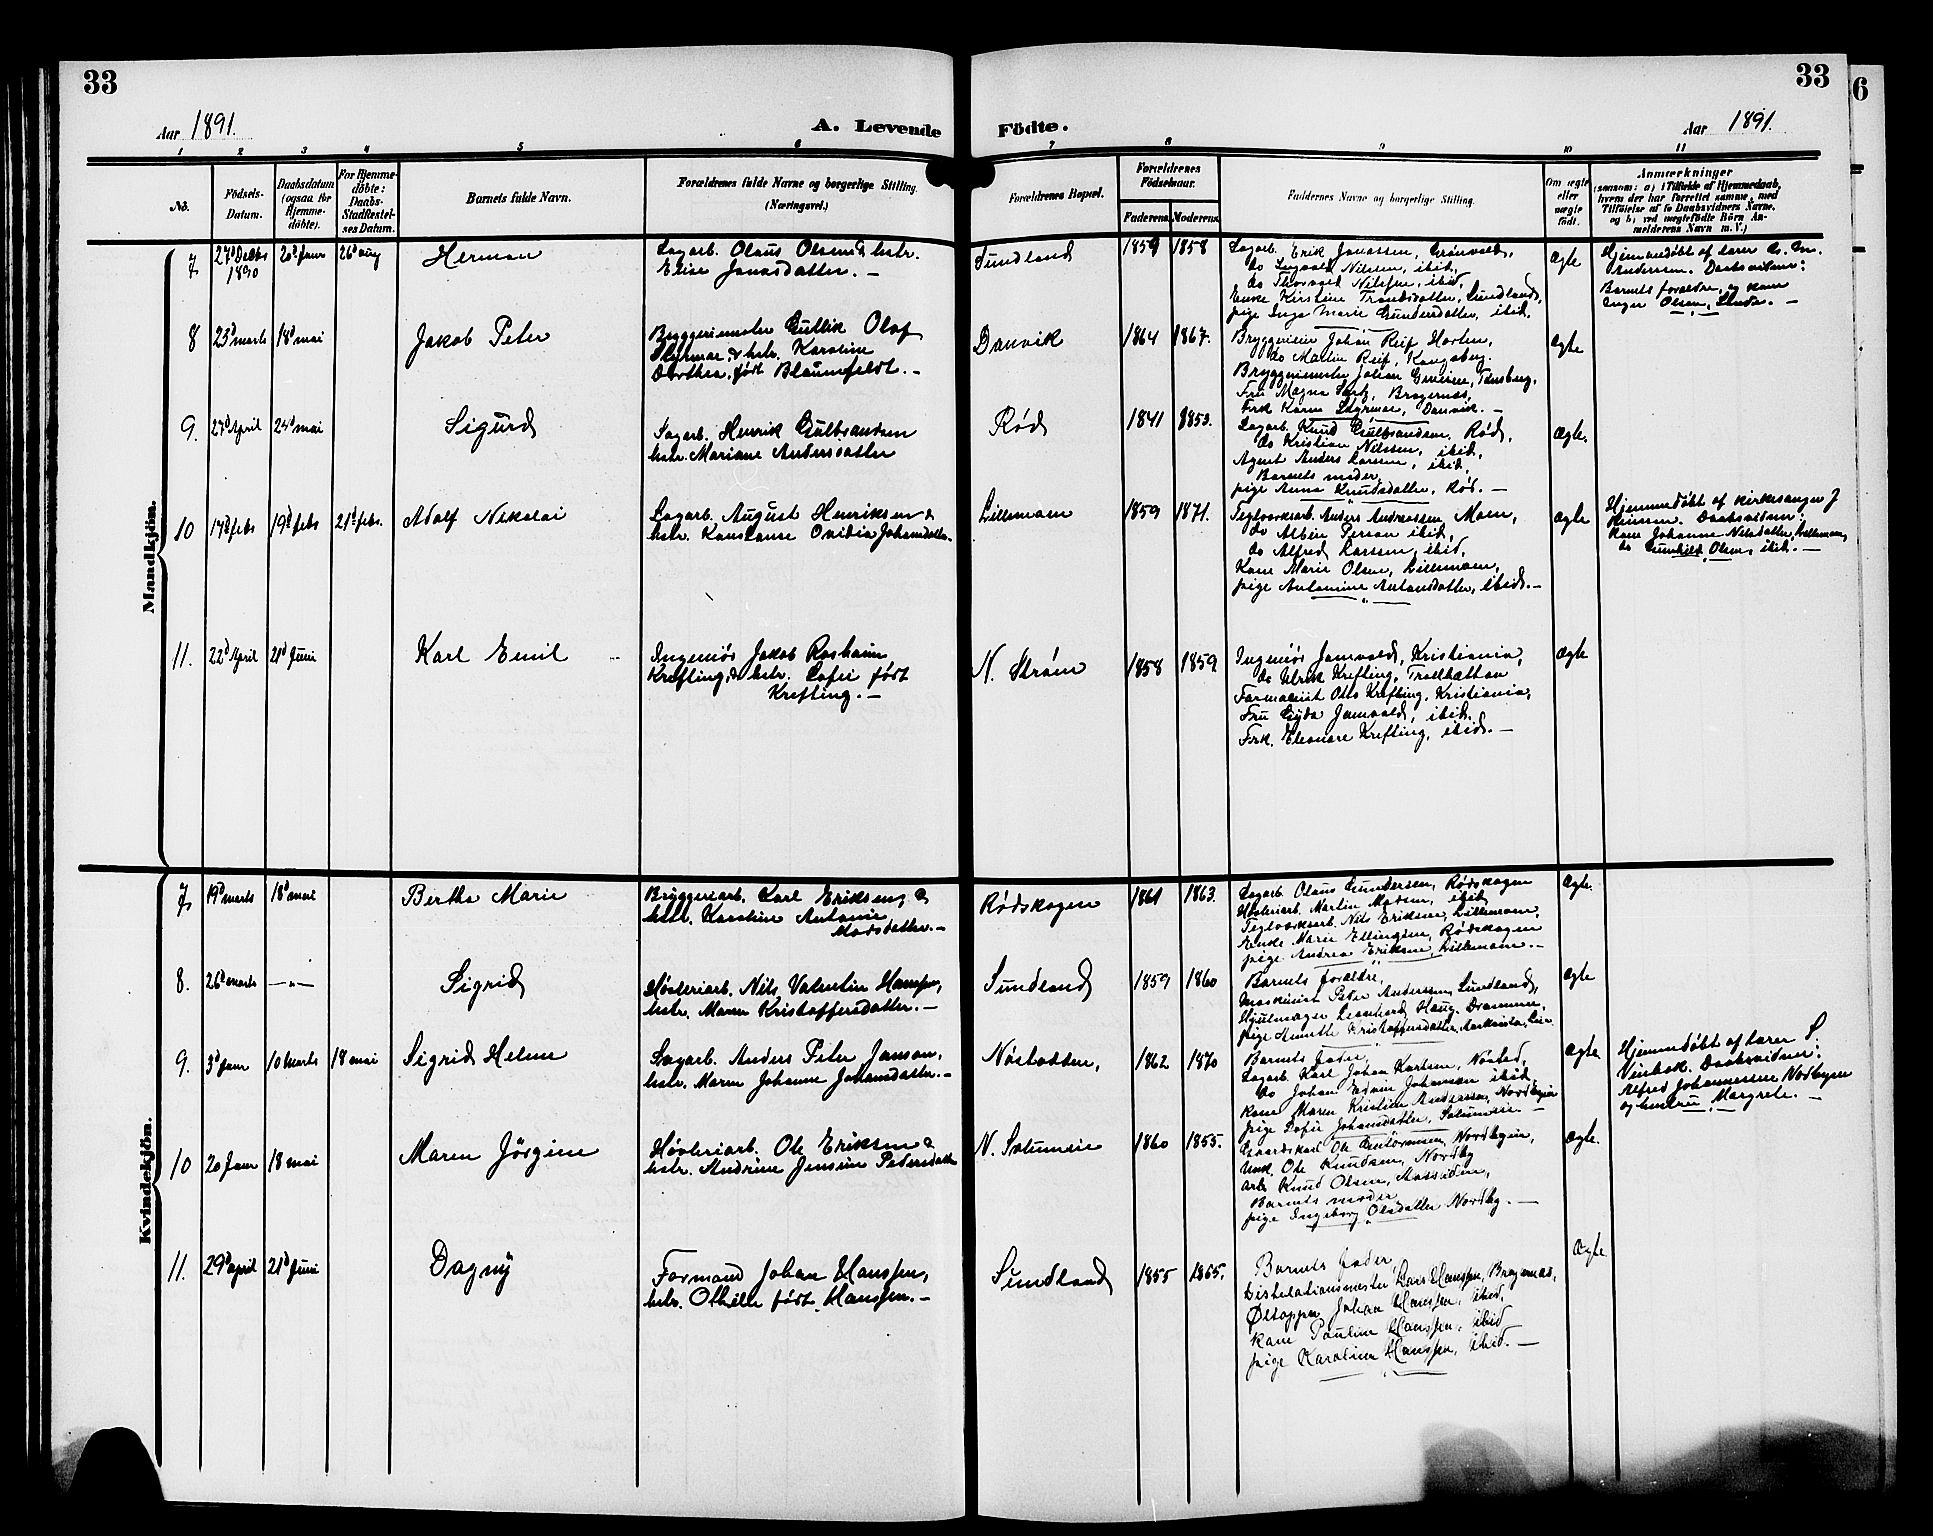 33
33
6
Aar 1891.
A. Levende
Födte.
Aar 1891.
1 2 3 4 5 6 7 8 9 10 11
No.
Födsels-
Datum.
Daabsdatum
(ogsaa for
Hjemme-
döbte).
For Hjemme-
döbte:
Daabs-
Stadfæstel-
ses Datum.
Barnets fulde Navn.
Forældrenes fulde Navne og borgerlige Stilling.
(Næringsvei.)
Forældrenes Bopæl.
Forældrenes
Födselsaar.
Faderens. Moderens.
Faddernes Navne og borgerlige Stilling.
Om ægte
eller
uægte
födt.
Anmærkninger
(saasom: a) i Tilfælde af Hjemmedaab,
hvem der har forrettet samme, med
Tilföielse af to Daabsvidners Navne,
og b) ved uægtefödte Börn An-
melderens Navn m. V.)
Mandkjön.
7 27d Decbr 1890 26 aug Herman
Sagarb. Olaus Olsen & hstr.
Elise Jonasdatter. —
Sundland 1859 1858
Sagarb. Erik Jonassen, Grønvold,
do Nilsen, ibid,
do Thorvald Nilssen, ibid,
Enke Kirstine Sundland,
pige Inga Marie Gundersdatter, ibid.
Ægte
Hjemmedøbt af lærer
Andersen. Daabsvidner:
Barnets forældre, og kone
Inger Olsen, —
8 23d marts 18d mai Jakob Peter
Bryggerimester Gullik Olaf
Styrmar & hstr. Karoline
Dorthea, født Blaumfeldt. —
Danvik 1864 1867.
Bryggerieier Johan Reif Horten,
do Martin Reif, Kongsberg.
Bryggerimester Johan Tønsberg,
Fru Magna Bragernæs,
Frk Karen Styrmar, Danvik. —
Ægte
9. 27d April 24d mai Sigurd
Sagarb. Henrik Gulbrandsen
hstr. Mariane Andersdatter
Rød 1841 1853.
Sagarb. Knud Gulbrandsen, Rød,
do Kristian Nilssen, ibid,
Agent Anders Larsen, ibid,
Barnets moder,
pige Anna Knudsdatter, Rød. —
Ægte.
10 17d febr 19d febr 21d febr. Adolf Nikolai
Sagarb. August Henriksen &
hstr. Konstanse Ovidia Johansdatter
Lillemoen 1859 1871.
Teglværksarb. Anders Andreassen Moen,
do Albin Person ibid,
do Alfred Larssen, ibid,
Kone Marie Olsen, Lillemoen,
pige Antonine Antonsdatter, ibid. —
Ægte
Hjemmedøbt af kirkesanger J
Daabsvidner:
Kone Johanne Nilsdatter, Lillemoen,
do Gunhild Olsen, ibid. —
11. 22d April 21d Juni Karl Emil
Ingeniør Jakob Rosheim
Krefting, & hstr. Sofie født
Krefting. —
N. Strøm 1858 1859
Ingeniør Jamvold, Kristiania,
do Ulrik Krefting, Trolhättan
Farmaceut Otto Krefting, Kristiania,
Fru Gyda Jamvold, ibid.
Frk. Eleonore Krefting, ibid. —
Ægte
Kvindekjön.
7. 19d marts 18d mai Berthe Marie
Bryggeriarb. Karl Eriksen &
hstr. Karoline Antonie
Madsdatter. —
Rødskogen 1861 1863.
Sagarb. Olaus Gundersen, Rødskogen
Høvleriarb. Martin Madsen, ibid,
Teglværksarb. Nils Eriksen, Lillemoen,
Enke Marie Ellingsen, Rødskogen
pige Andrea Eriksen, Lillemoen. —
Ægte.
8. 26d marts —"— Sigrid
Høvleriarb. Nils Valentin Hansen,
hstr. Maren Kristoffersdatter. —
Sundland 1859 1860
Barnets forældre,
Maskinist Peter Anderssen, Sundland,
Hjulmager Leonhard Haug, Drammen.
pige Annette Kristoffersdatter, Lier
Ægte
9. 3d Janr 10 marts 18 mai Sigrid Helene
Sagarb. Anders Peter Jonson,
hstr. Maren Johanne Johansdatter. —
Nøstodden, 1862 1870
Barnets fader,
Sagarb. Karl Johan Karlsen, Nøsted,
do Johan Edvin Johannsen ibid,
kone Maren Kristine Andersen, Nordbyeie
pige Sofie Johansdatter, Solumeie. —
Ægte
Hjemmedøbt af lærer S.
Daabsvidner:
Alfred Johannessen Nordbyeie
og hustru Margrete. —
10 20 Janr 18 mai Maren Jörgine
Høvleriarb. Ole Eriksen &
hstr. Andrine Jensine Pedersdatter
N. Solumeie 1860 1855.
Gaardskarl Ole Nordbyeie,
Unk. Ole Knudsen, Nordby
arb. Knud Olsen,
Barnets moder
pige Ingeborg Olsdatter Nordby. —
Ægte.
11. 29d april 21d Juni Dagny
Formand Johan Hanssen,
hstr. Othilie født Hanssen. —
Sundland 1855 1865.
Barnets fader,
Distilationsmester Lars Hanssen, Bragernæs,
Øltapper Johan Hanssen, ibid,
kone Pauline Hanssen, ibid
pige Karoline Hanssen, ibid. —
Ægte